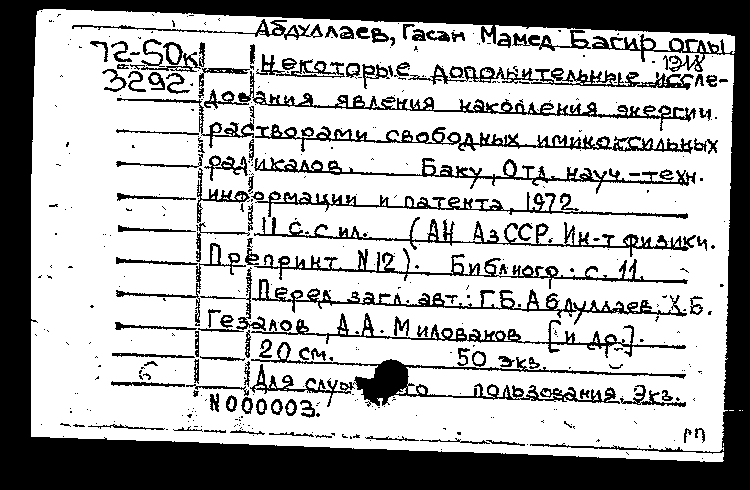 Абдуллаев, Гасан Мамед Багир оглы
1918
72-50к
Некоторые дополнительные иссле-
3292
дования явления накопления энергии.
растворами свободных иминоксильных
радикалов. Баку, Отд. науч.-техн.
информации и патента, 1972.
11 с. с ил. (АН АзССР. Ин-т физики.
Препринт N12). Библиогр.: с. 11.
Перед загл. авт.: Г.Б. Абдуллаев, Х.Б.
Гезалов, А.А. Милованов [и др.].
20 см. 50 экз.
б
Для пользования. Экз.
N000003.
РП